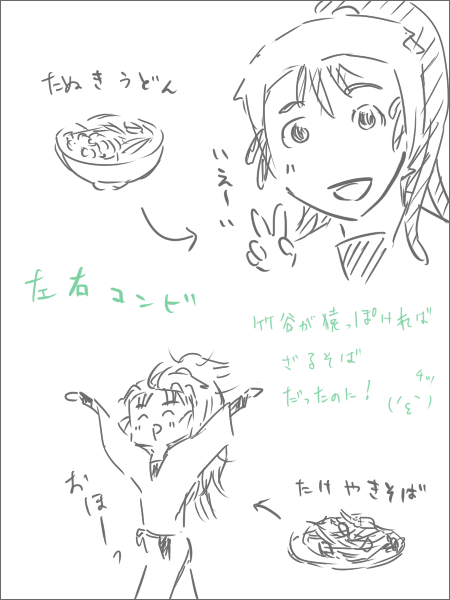 たぬきうどん
いえーい
左右コンビ
竹谷が猿っぽければ
ざるそば
だったのに！
チッ
(´ε｀)
おほーっ
たけやきそば